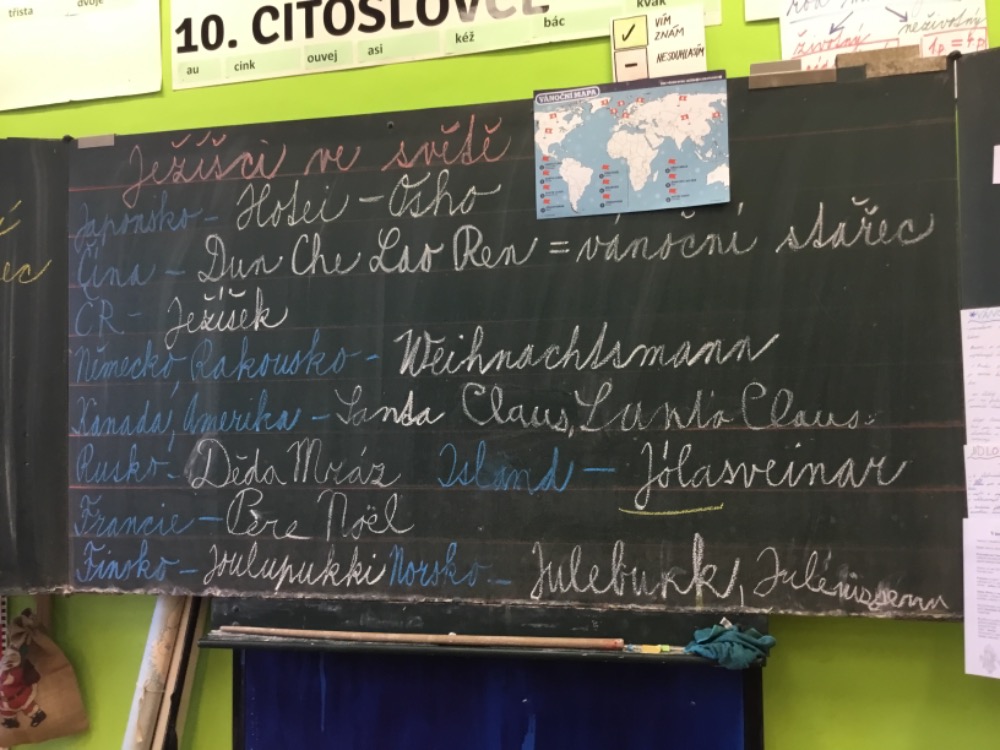 třísta dvoje
10. CITOSLOVCE
au cink ouvej asi kéž bác kvak
VÍM
ZNÁM
NESOUHLASÍM
neživotný
životný
VÁNOČNÍ MAPA
Ježíšci ve světě
Japonsko - Hotei - Osho
Čína - Dun Che Lao Ren = vánoční stařec
ČR - Ježíšek
Německo, Rakousko - Weihnachtsmann
Kanada, Amerika - Santa Claus, Santa Claus
Rusko - Děda Mráz Island - Jólasveinar
Francie - Pére Noël
Finsko - Joulupukki Norsko - Julebukk,